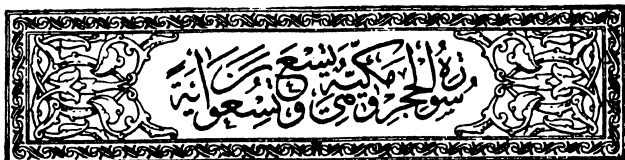 سُورَةُ الحِجْرِ مَكِّيَّة وهى تِسْع وتسعون اٰيَة